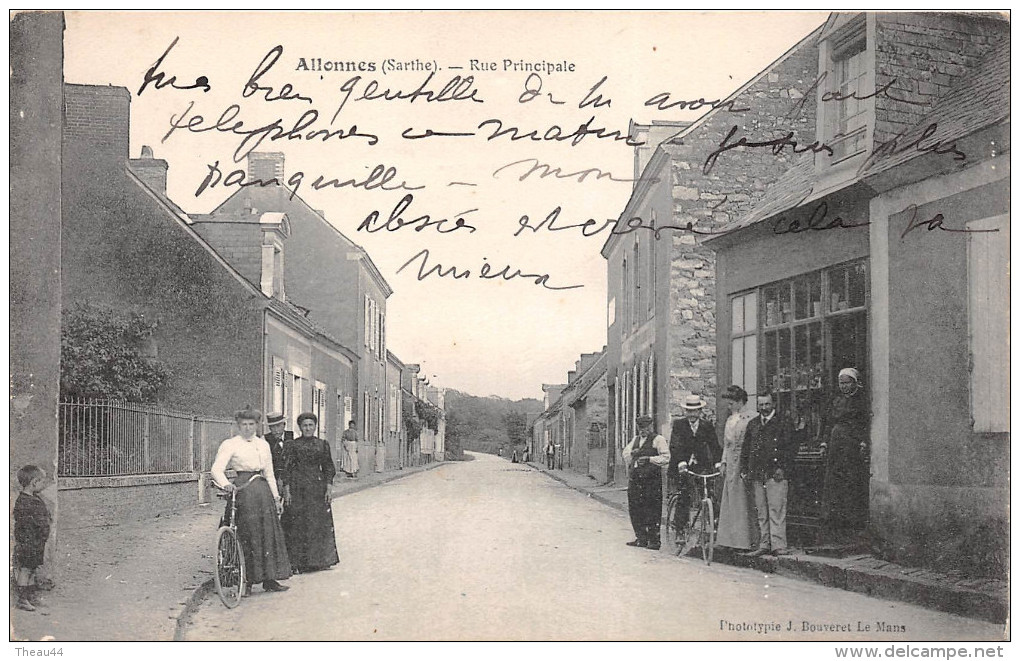 Allonnes (Sarthe). — Rue Principale
tues bien gentille de lui avoir fait
telephoner ce matin je suis plus
tranquille — mon
absés est crevé cela va
mieux
Phototypie J. Bouveret Le Mans
Theau44
www.delcampe.net